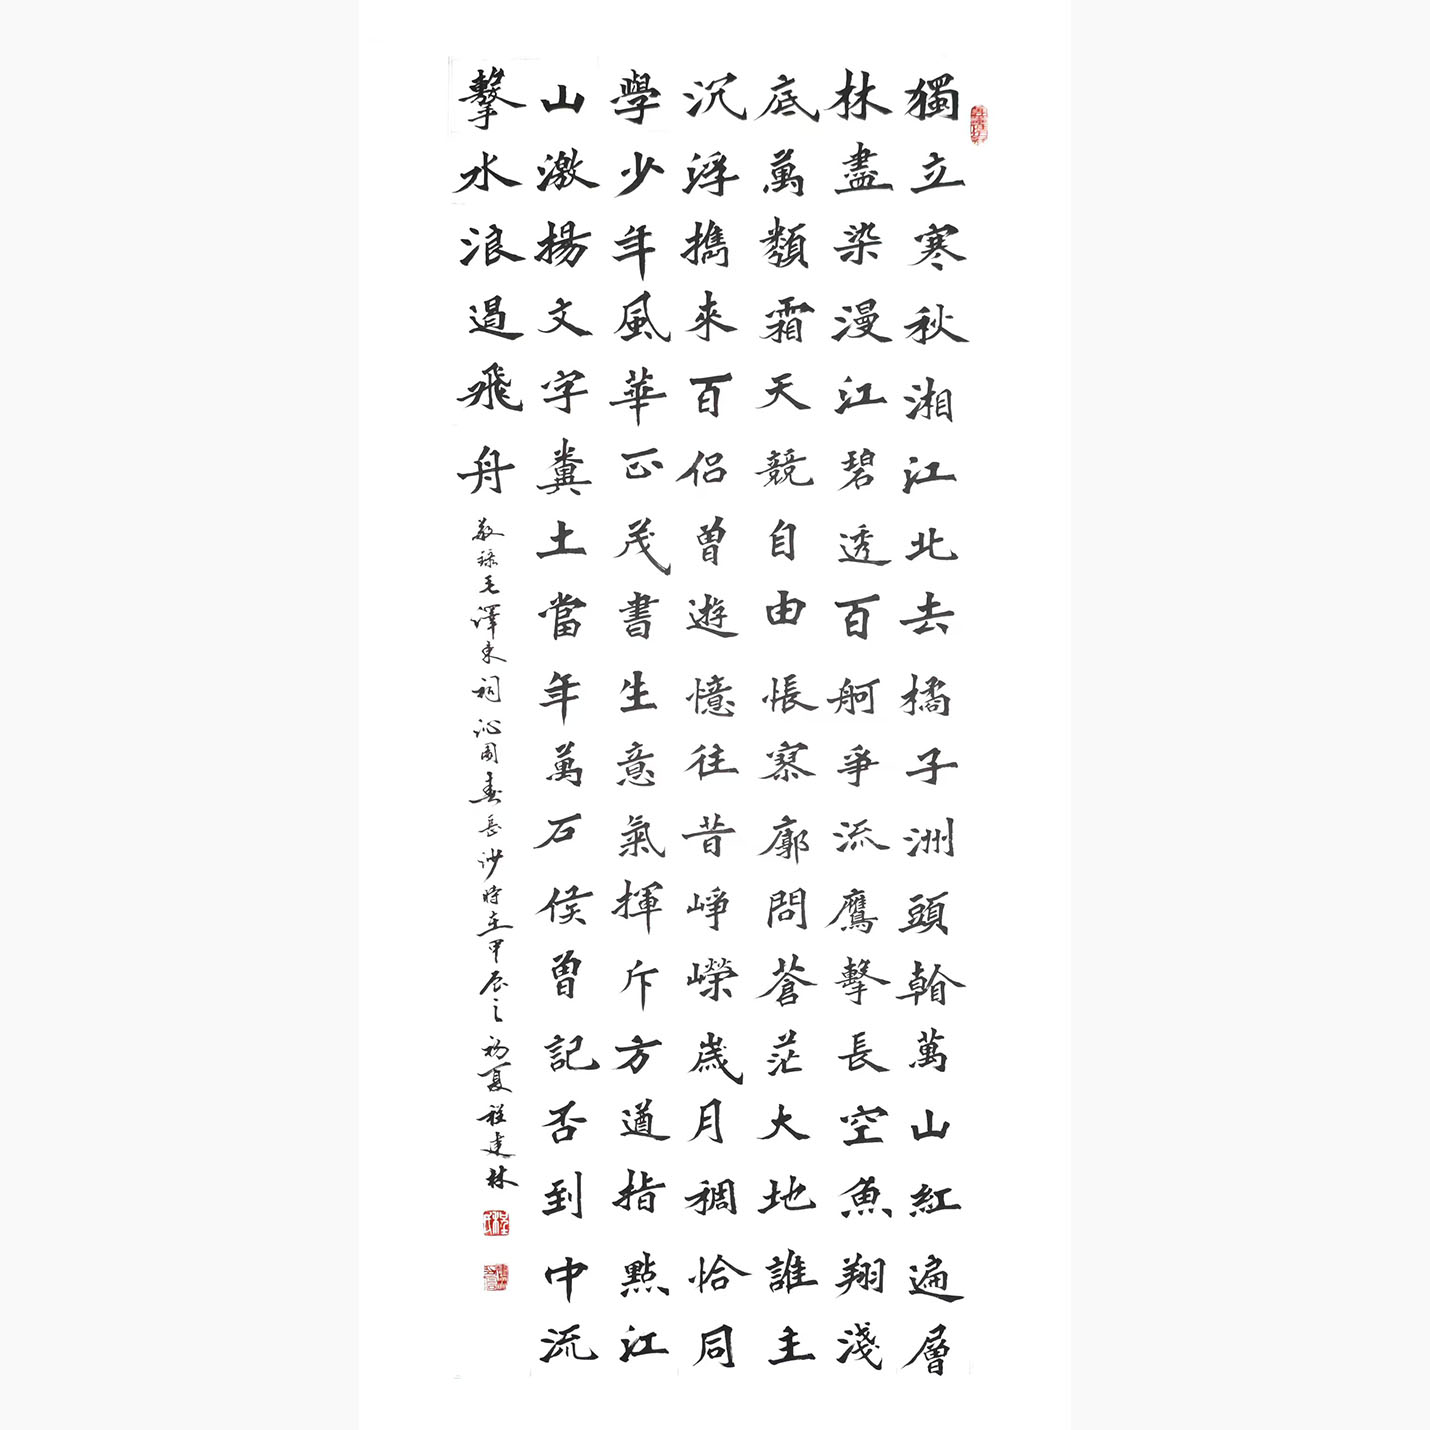 獨立寒秋湘江北去橘子洲頭看萬山紅遍層
林盡染漫江碧透百舸爭流鷹擊長空魚翔淺
底萬類霜天競自由悵寥廓問蒼茫大地誰主
沉浮攜來百侶曾遊憶往昔崢嶸歲月稠恰同
學少年風華正茂書生意氣揮斥方遒指點江
山激揚文字糞土當年萬户侯曾記否到中流
擊水浪遏飛舟
敬録毛澤東詞沁園春長沙時在甲辰之初夏程建林